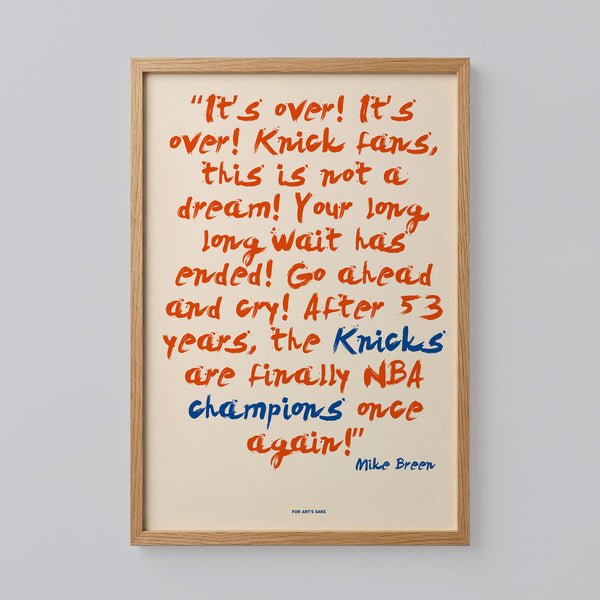 “It's over! It's
over! Knick fans,
this is not a
dream! Your long
long wait has
ended! Go ahead
and cry! After 53
years, the Knicks
are finally NBA
champions once
again!”
Mike Breen
FOR ART'S SAKE